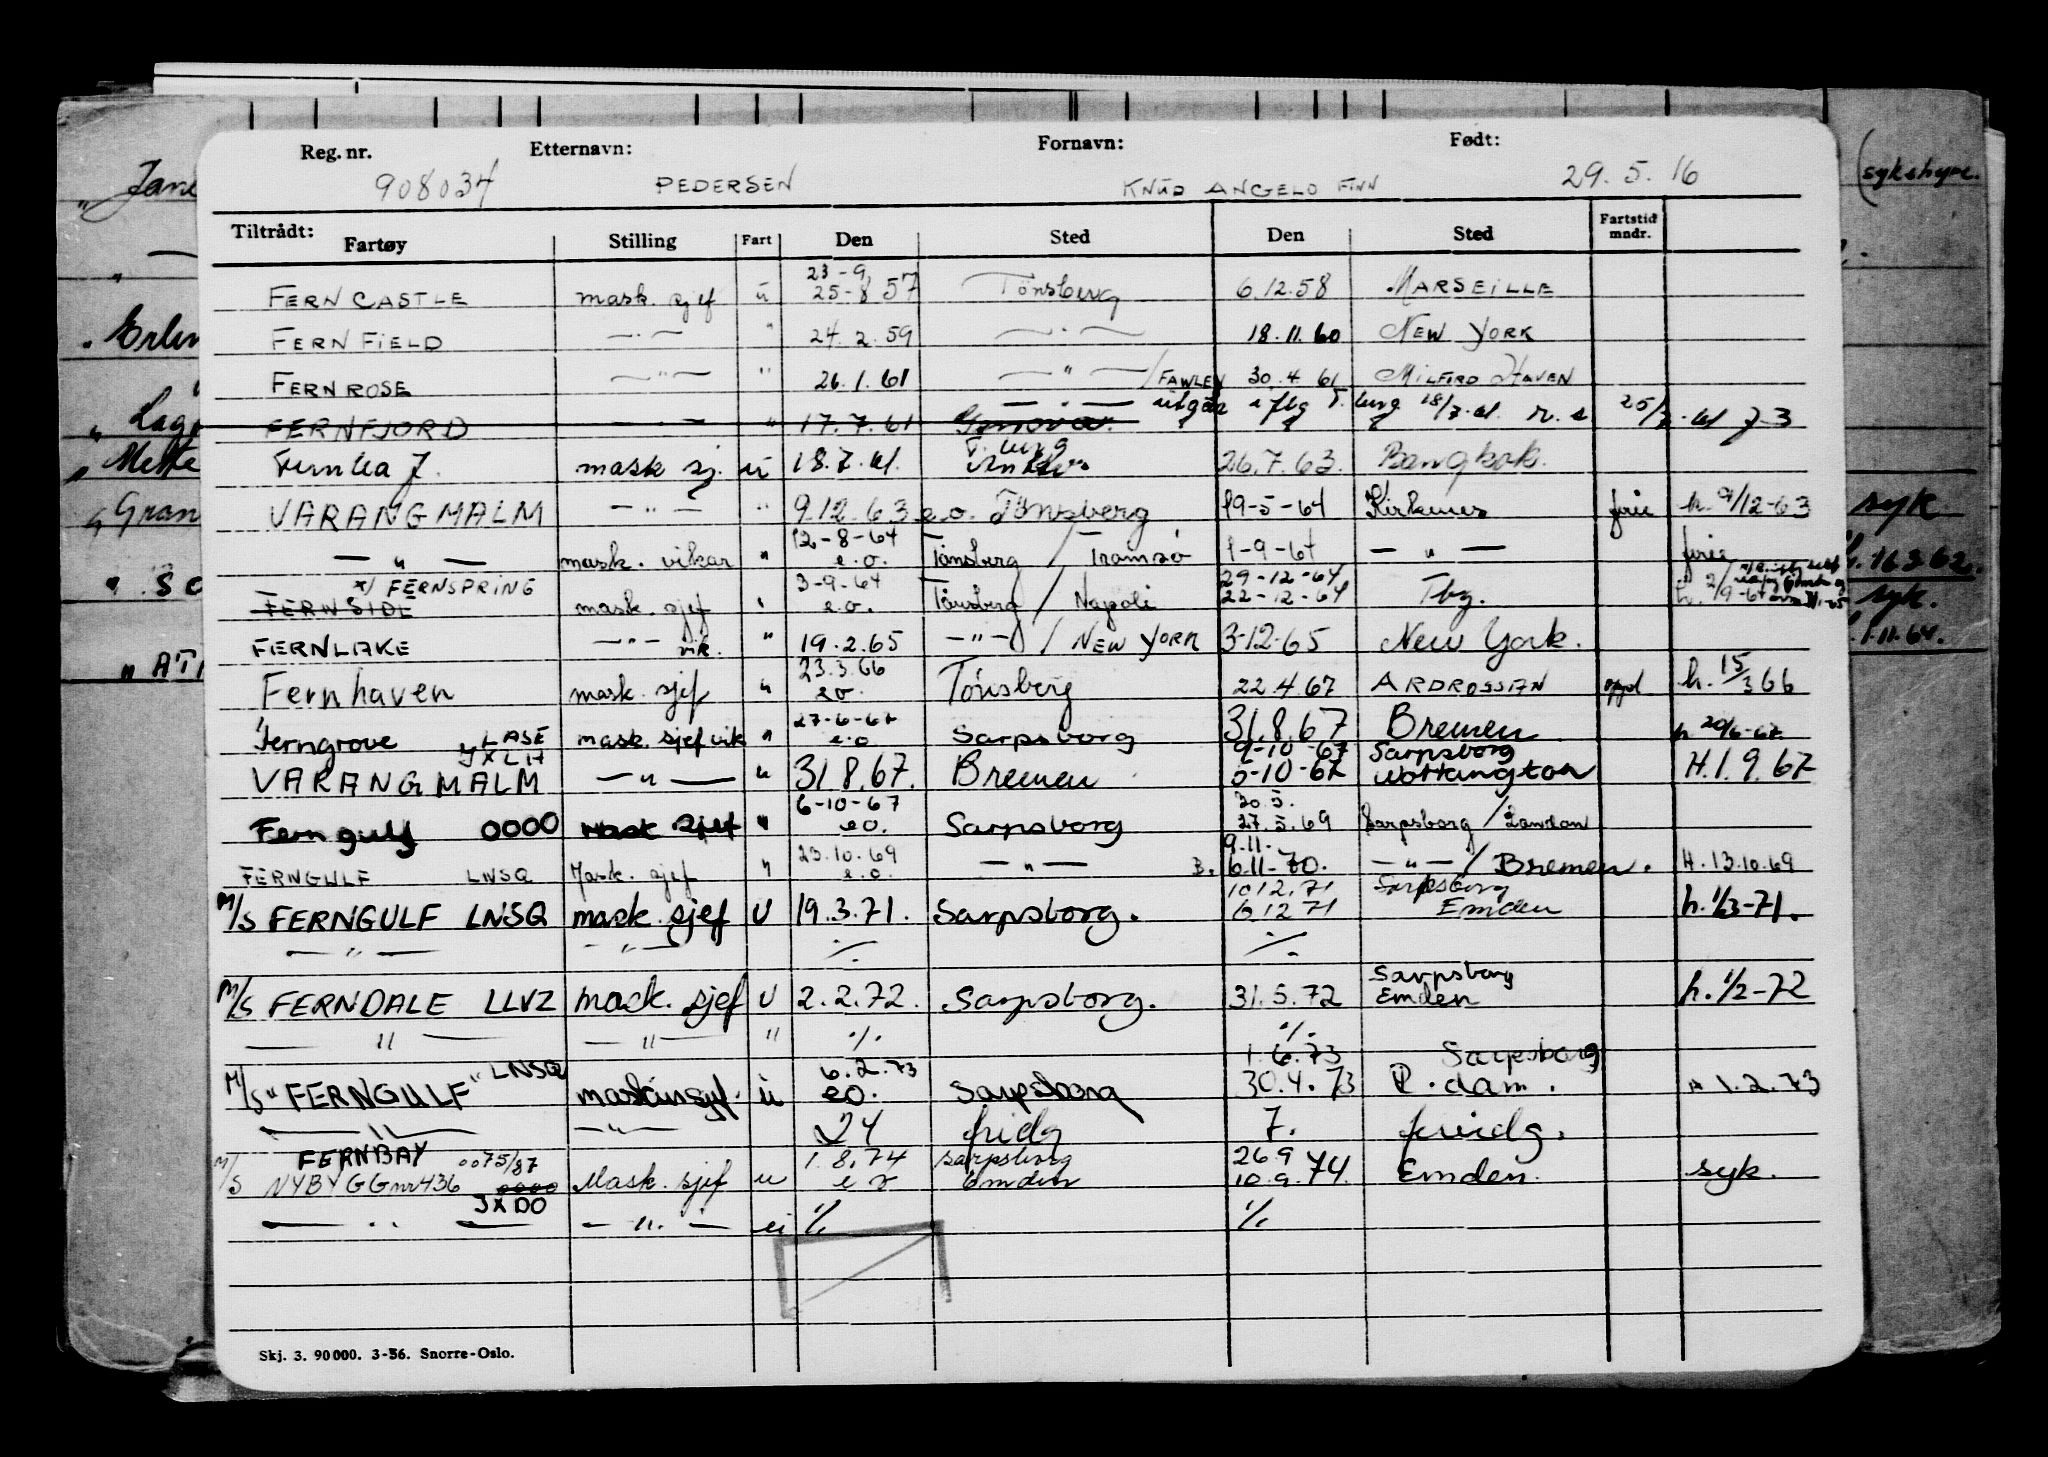 Reg. nr. Etternavn: Fornavn: Født:
908034 PEDERSEN KNUD ANGELO FINN 29.5.16
(sykehyre.
Tiltrådt:
Fartøy Stilling Fart Den Sted Den Sted Fartstid mndr.
23-9
FERNCASTLE mask. sjef u 25-8 57 Tönsberg 6.12.58 MARSEILLE
FERNFIELD —·— " 24.2.59 —·— 18.11.60 NEW YORK
FERNROSE —"— " 26.1.61 —"— / FAWLEY 30.4.61 MILFORD HAVEN
—·— utgår
FERNFJORD —·— " 17.7.61 Genova
Fernlea J. mask sj. u 18.7.61. T. berg 26.7.63. Bangkok.
VARANGMALM —"— " 9.12.63 e.o. Tönsberg 19-5-64 Kirkenes ferie h. 9/12-63
12-8-64
—"— mask. vikar " e.o. Tönsberg / Tromsö 1-9-64 —"— ferie
x/ FERNSPRING 3-9-64 29-12-64
FERNSIDE mask. sjef " e.o. Tönsberg / Napoli 22-12-64 Tbg.
FERNLAKE —"— vik. " 19.2.65 —"— / NEW YORK 3-12-65 New York.
23.3.66
Fernhaven mask. sjef " eo Tönsberg 22.4.67 ARDROSSAN oppd. h. 15/3 66
27-6-67
Ferngrove LASE mask. sjef vik " e.o Sarpsborg 31.8.67 Bremen h 20/6-67
JXLH 9-10-67 Sarpsborg
VARANGMALM —"— " 31.8.67. Bremen 0-10-67 H.1.9.67
6-10-67 30.5.
Ferngulf 0000 Mask sjef " eo. Sarpsborg 27.5.69 Sarpsborg / London
23.10.69 9.11.
FERNGULF LNSQ Mask. sjef " e.o. —"— B. 6.11-70. —"— / Bremen. H. 13.10.69
10.12.71 Sarpsborg
M/S FERNGULF LNSQ mask. sjef U 19.3.71. Sarpsborg. 6.12 71 Emden h. 1/3-71.
—"— —"— ·/· ·/·
Sarpsborg
M/S FERNDALE LLVZ mask. sjef U 2.2.72. Sarpsborg. 31.5.72 Emden h. 1/2-72
—"— —"— " ·/· ·/·
6.2.73 1.6.73 Sarpsborg
M/S "FERNGULF" LNSQ u eo. Sarpsborg 30.4.73 R.dam. H 1.2.73
—"— —"— 24 fridg 7. fridg.
FERNBAY 0075/37 1.8.74 Sarpsborg 26.9
M/S NYBYGG nr 436 0000 Mask. sjef u e o Emden 10.9.74. Emden. syk.
JXDO
—"— —"— ·/· ·/·
Skj. 3. 90000. 3-56. Snorre-Oslo.
Erlin
Mette
Gran
syk
16.3.62.
syk.
1.11.64.